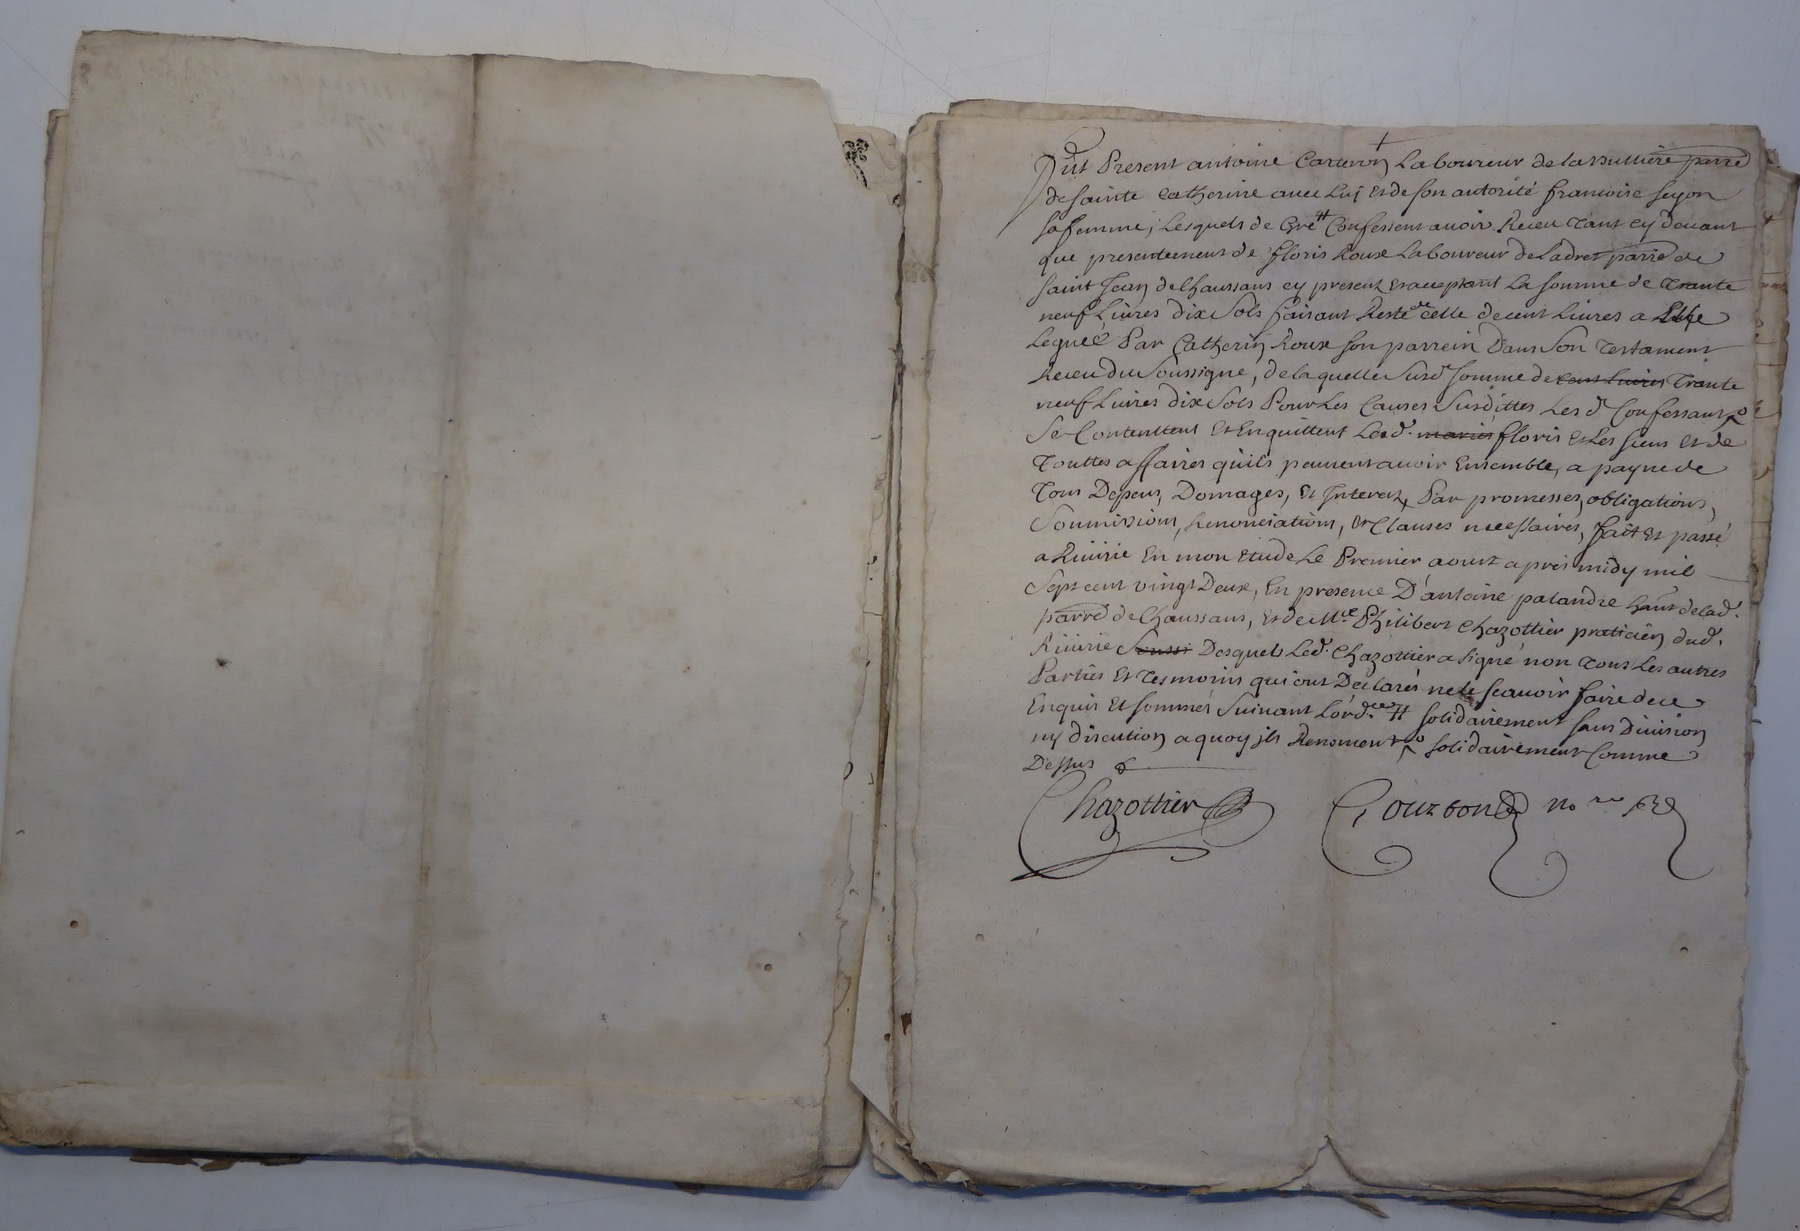 Fut Present antoine Carteron Laboureur de la rulliere parre
de sainte catherine avec Luy et de son autorité francoise seyon
sa femme, Lesquels de Gré # Confessent avoir Receu tant cy devant
que presentement de floris Roux Laboureur de Ladret parre de
saint Jean de Chaussans cy present et acceptant La somme de trante
neuf Livres dix Sols faisant Reste de celle de cent Livres a Elle
Leguée Par Catherin Roux son parrein Dans Son testament
Receu du Soussigne, de laquelle Susd somme de cent Livres trante
neuf Livres dix Sols Pour Les Causes Susdittes Les d Confessants
Se Contenttent Et En quittent Led. mariés floris Et Les siens Et de
touttes affaires quils peuvent avoir Ensemble, a payne de
tous Depens, Domages, Et Interets, Par promesses, obligations,
Soumissions, Renonciations, Et Clauses necessaires, fait Et passé
a Riverie En mon Etude Le Premier aoust apres midy mil
Sept cent vingt Deux, En presence D'antoine palandre hant de lad.
parre de Chaussans, Et de Mre Philibert Chazottier praticien dud.
Riverie Desquels Led. Chazottier a signé non tous Les autres
Parties Et tesmoins qui ont Declarés ne le scavoir faire de ce
Enquis Et sommés Suivant Lord.ce # solidairement sans Division
ny discution a quoy jls Renoncent solidairement Comme
Dessus
Chazottier Gouzbond no re